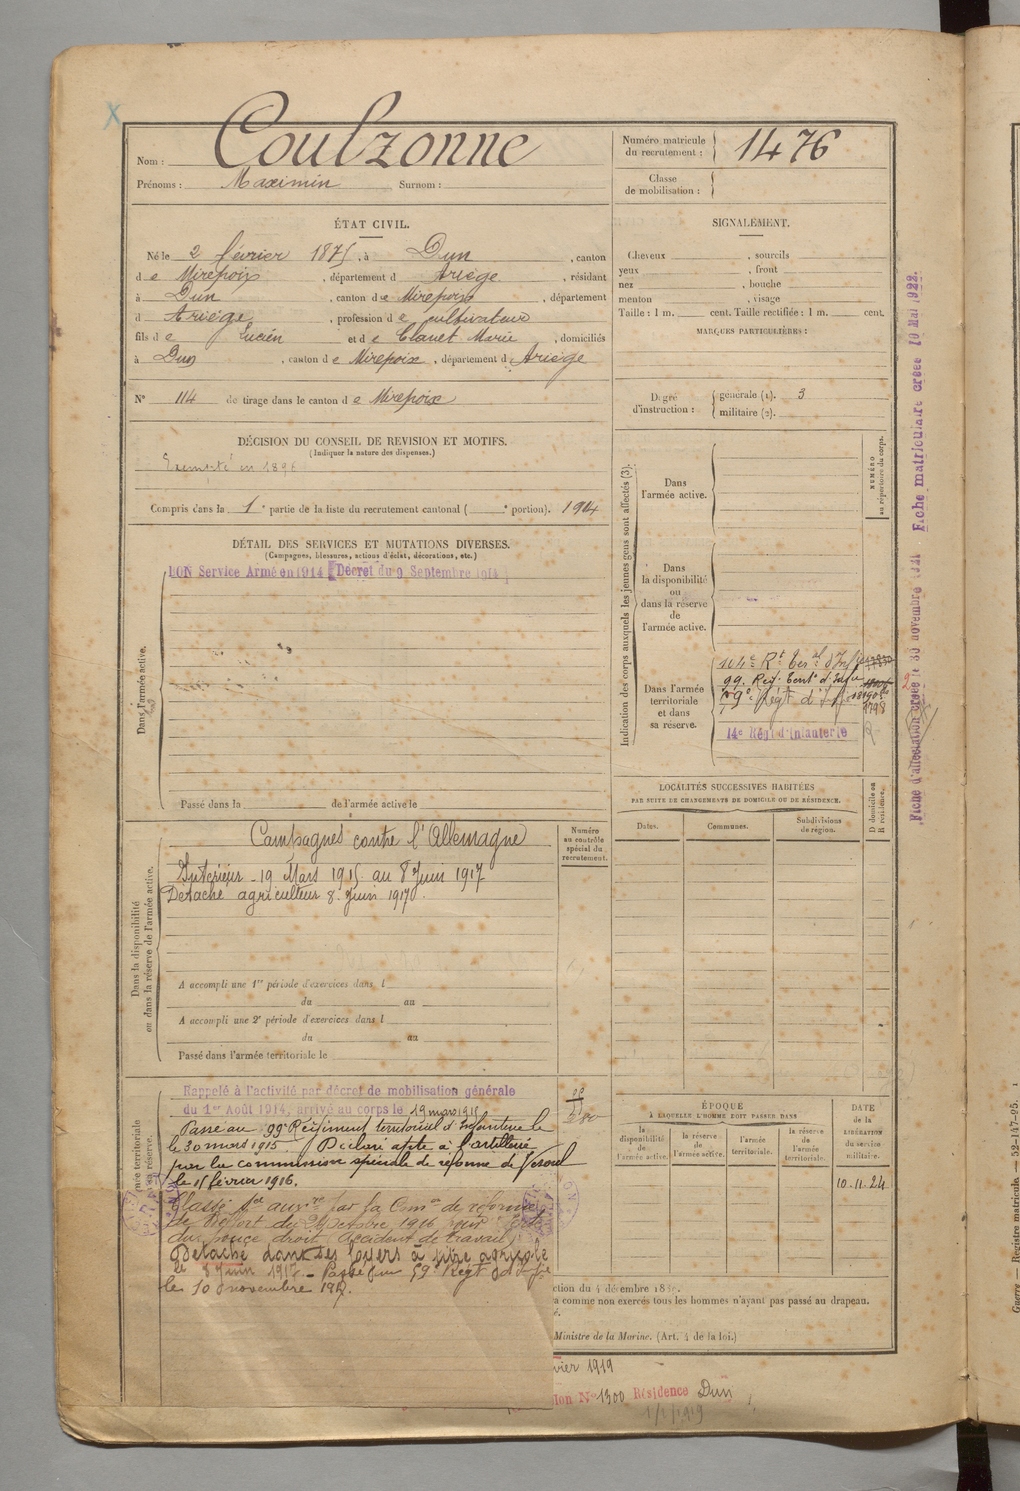 Nom : Coulzonne
Prénoms : Maximin Surnom :
Numéro matricule du recrutement : 1476
Classe de mobilisation :
ÉTAT CIVIL.
Né le 2 février 1875, à Dun, canton
de Mirepoix, département d Ariège, résidant
à Dun, canton de Mirepoix, département
d Ariège, profession de cultivateur
fils de Lucien et de Clanet Marie, domiciliés
à Dun, canton de Mirepoix, département d Ariège
N° 114 de tirage dans le canton de Mirepoix
SIGNALEMENT.
Cheveux , sourcils
yeux , front
nez , bouche
menton , visage
Taille : 1 m. cent. Taille rectifiée : 1 m. cent.
MARQUES PARTICULIÈRES :
Degré d'instruction : générale (1). 3
militaire (2).
DÉCISION DU CONSEIL DE REVISION ET MOTIFS.
(Indiquer la nature des dispenses.)
Exempté en 1896
Compris dans la 1e partie de la liste du recrutement cantonal ( e portion). 1914
DÉTAIL DES SERVICES ET MUTATIONS DIVERSES.
(Campagnes, blessures, actions d'éclat, décorations, etc.)
BON Service Armé en 1914 [Décret du 9 Septembre 1914]
Dans l'armée active.
Passé dans la de l'armée active le
Indication des corps auxquels les jeunes gens sont affectés (3).
NUMÉRO au répertoire du corps.
Dans l'armée active.
Dans la disponibilité ou dans la réserve de l'armée active.
Dans l'armée territoriale et dans sa réserve.
104e Rt Teral d'Infie
99. Reg. Terit. d'Infie
59e Régt d'Inf.
14e Régt d'Infanterie
1798
Fiche d'affectation créée le 30 novembre Fiche matriculaire créée 10 Mai 1922.
LOCALITÉS SUCCESSIVES HABITÉES
PAR SUITE DE CHANGEMENTS DE DOMICILE OU DE RÉSIDENCE.
Dates. Communes. Subdivisions de région. D domicile ou R résidence.
Dans la disponibilité ou dans la réserve de l'armée active.
Numéro au contrôle spécial du recrutement.
Campagnes contre l'Allemagne
Intérieur 19 Mars 1915 au 8 Juin 1917
Détaché agriculteur 8 Juin 1917
A accompli une 1re période d'exercices dans l
du au
A accompli une 2e période d'exercices dans l
du au
Passé dans l'armée territoriale le
Rappelé à l'activité par décret de mobilisation générale
du 1er Août 1914, arrivé au corps le 19 mars 1915
Passé au 99e Régiment territorial d'Infanterie le
le 30 mars 1915. Déclaré apte à l'artillerie
par la commission spéciale de réforme de Vesoul
le 15 février 1916.
Classé Sce auxre par la Comon de réforme
de Belfort du Octobre 1916 pour
du pouce droit (accident de travail)
Détaché dans ses foyers à titre agricole
le 8 Juin 1917. Passé au 59e Régt d'Infie
le 10 novembre 1917.
ÉPOQUE
À LAQUELLE L'HOMME DOIT PASSER DANS
la disponibilité de l'armée active. la réserve de l'armée active. l'armée territoriale. la réserve de l'armée territoriale.
DATE de la LIBÉRATION du service militaire.
10-11-24
ction du 4 décembre 18
a comme non exercés tous les hommes n'ayant pas passé au drapeau.
Ministre de la Marine. (Art. 4 de la loi.)
vier 1919
ion N° 1300 Résidence Dun
1/1/1919
Guerre — Registre matricule. — 52-147-95.